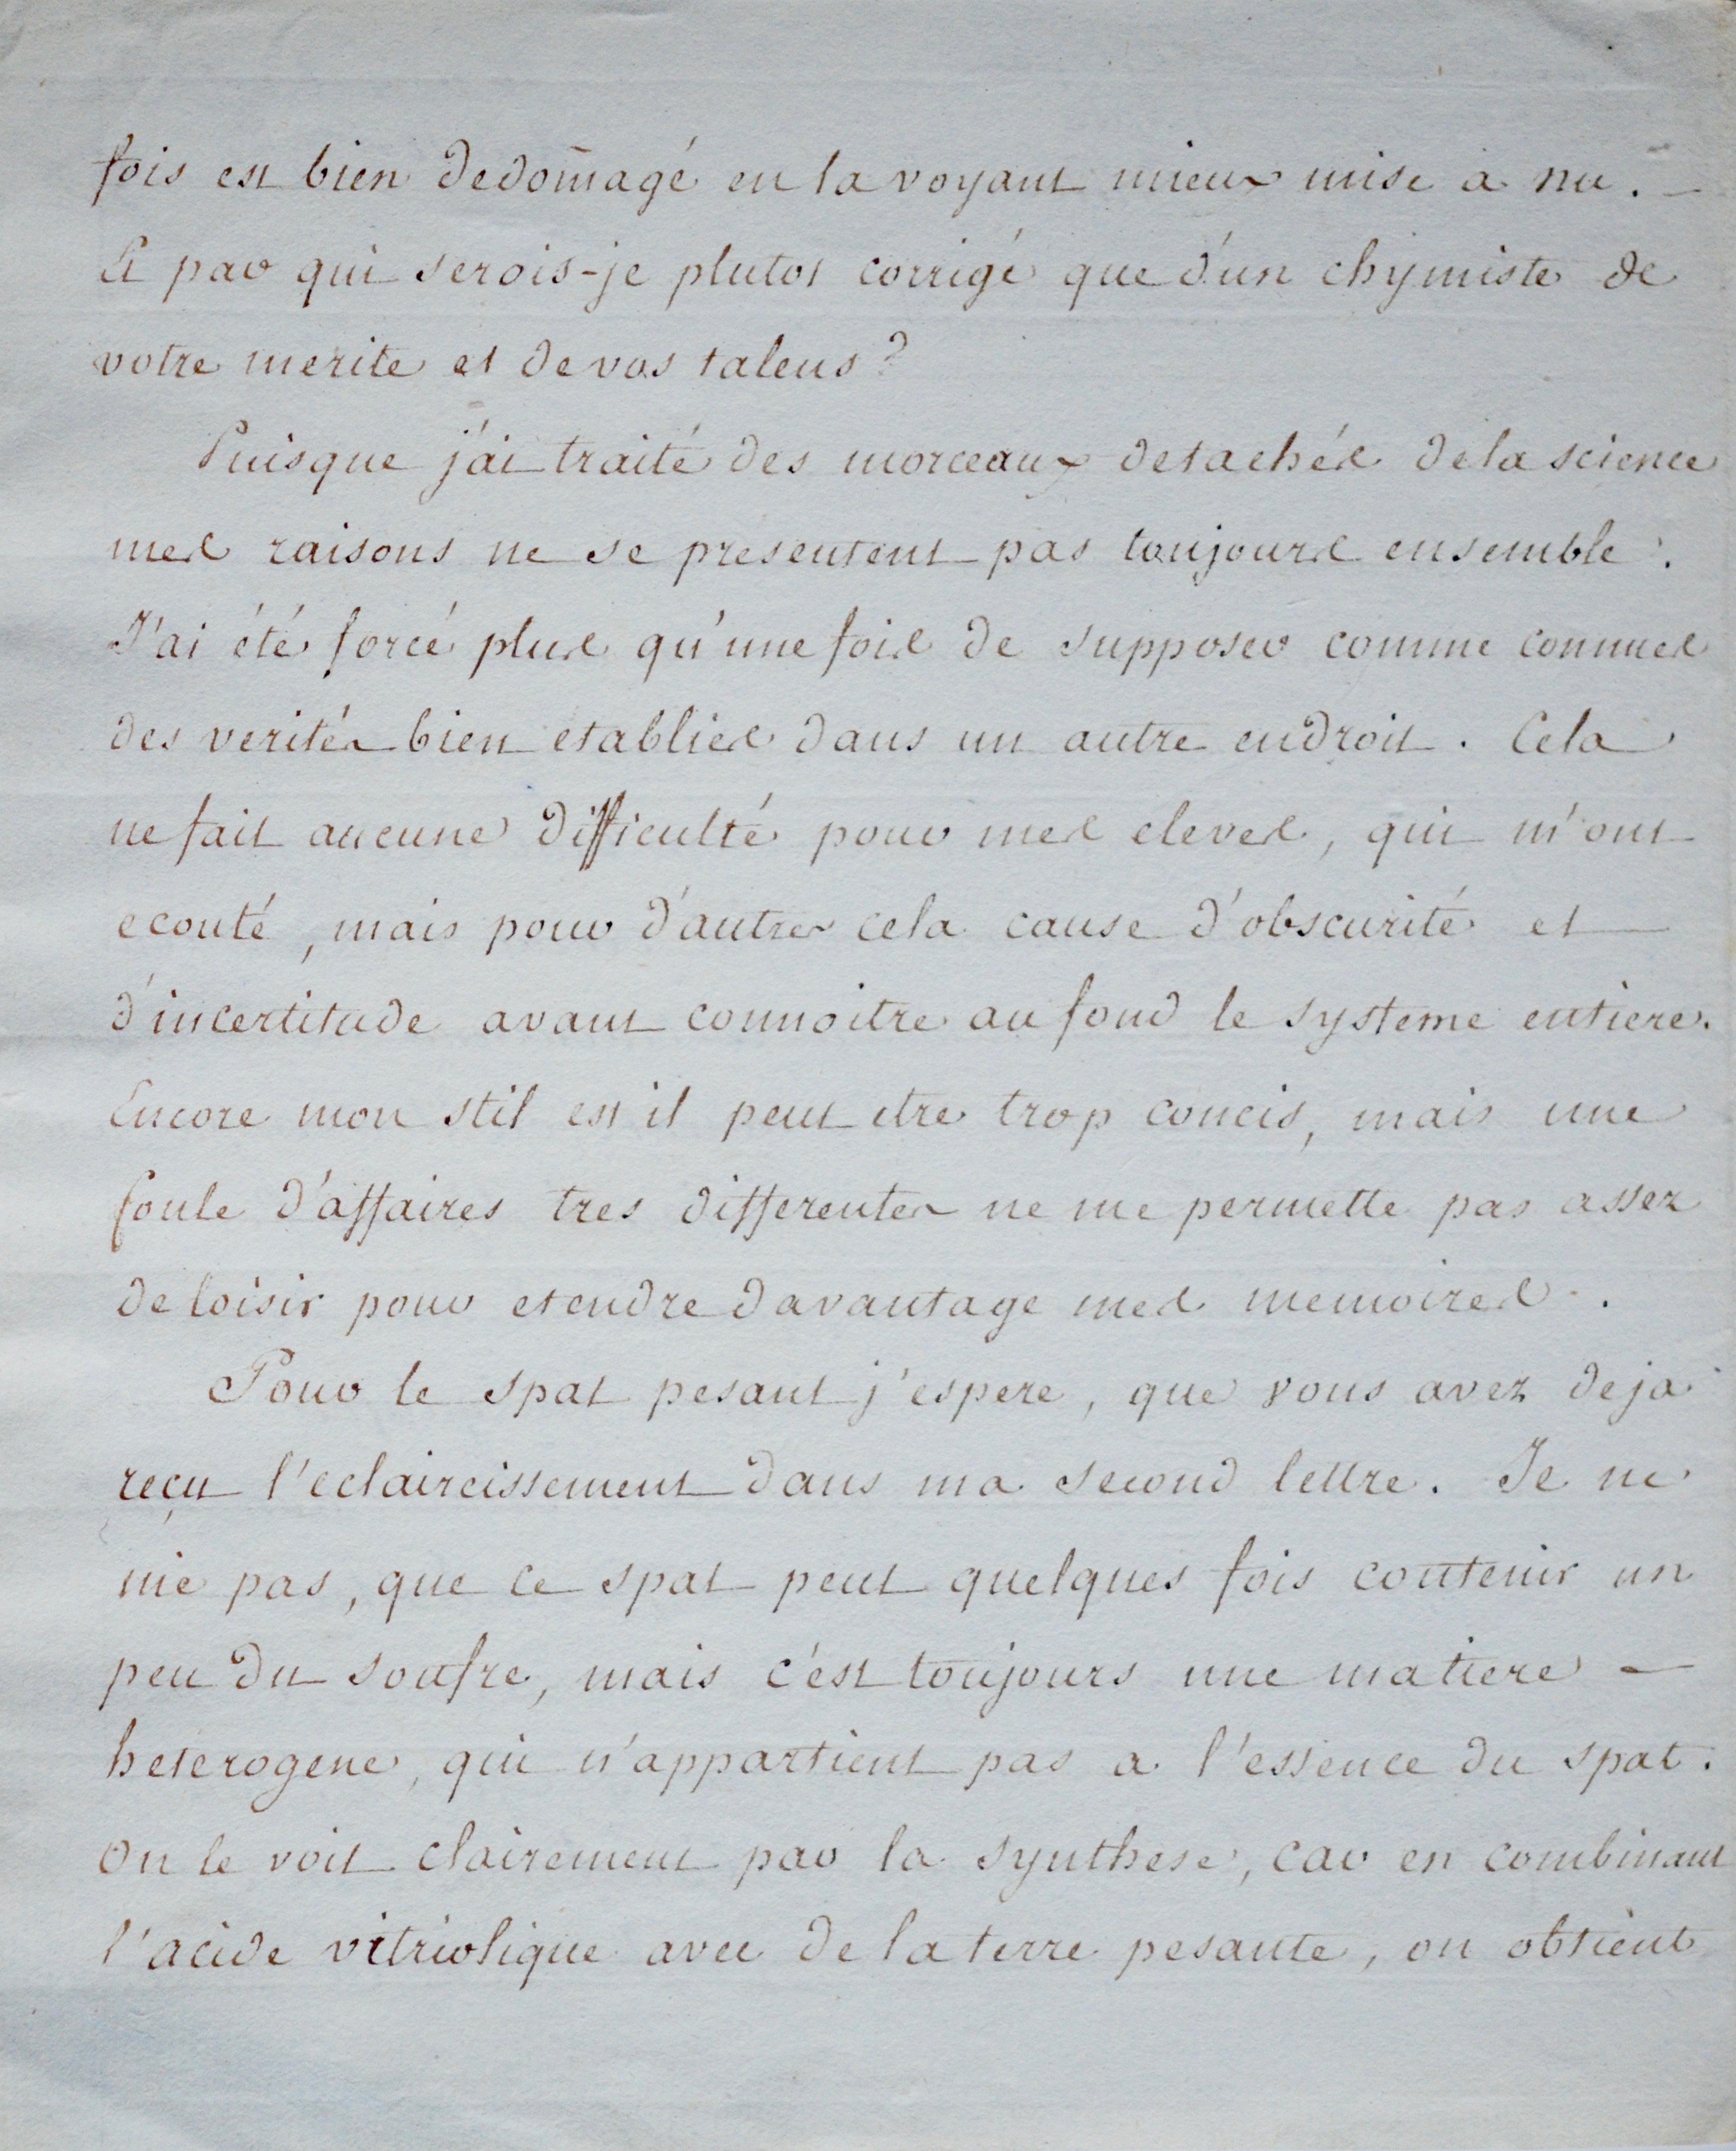 fois est bien dedom̄agé en la voyant mieux mise a nu. –
Et par qui serois-je plutot corrigé que d'un chymiste de
votre merite et de vos talens?
Puisque j'ai traité des morceaux detachés de la science
mes raisons ne se presentent pas toujours ensemble.
J'ai été forcé plus qu'une fois de supposer comme connues
des verités bien etablies dans un autre endroit. Cela
ne fait aucune difficulté pour mes eleves, qui m'ont
ecouté, mais pour d'autres cela cause d'obscurité et
d'incertitude avant connoitre au fond le systeme entiere.
Encore mon stil est il peut etre trop concis, mais une
foule d'affaires tres differentes ne me permette pas assez
de loisir pour etendre davantage mes memoires.
Pour le spat pesant j'espere, que vous avez deja
reçu l'eclaircissement dans ma second lettre. Je ne
nie pas, que ce spat peut quelques fois contenir un
peu du soufre, mais c'est toujours une matiere –
heterogene, qui n'appartient pas a l'essence du spat.
On le voit clairement par la synthese, car en combinant
l'acide vitriolique avec de la terre pesante, on obtient